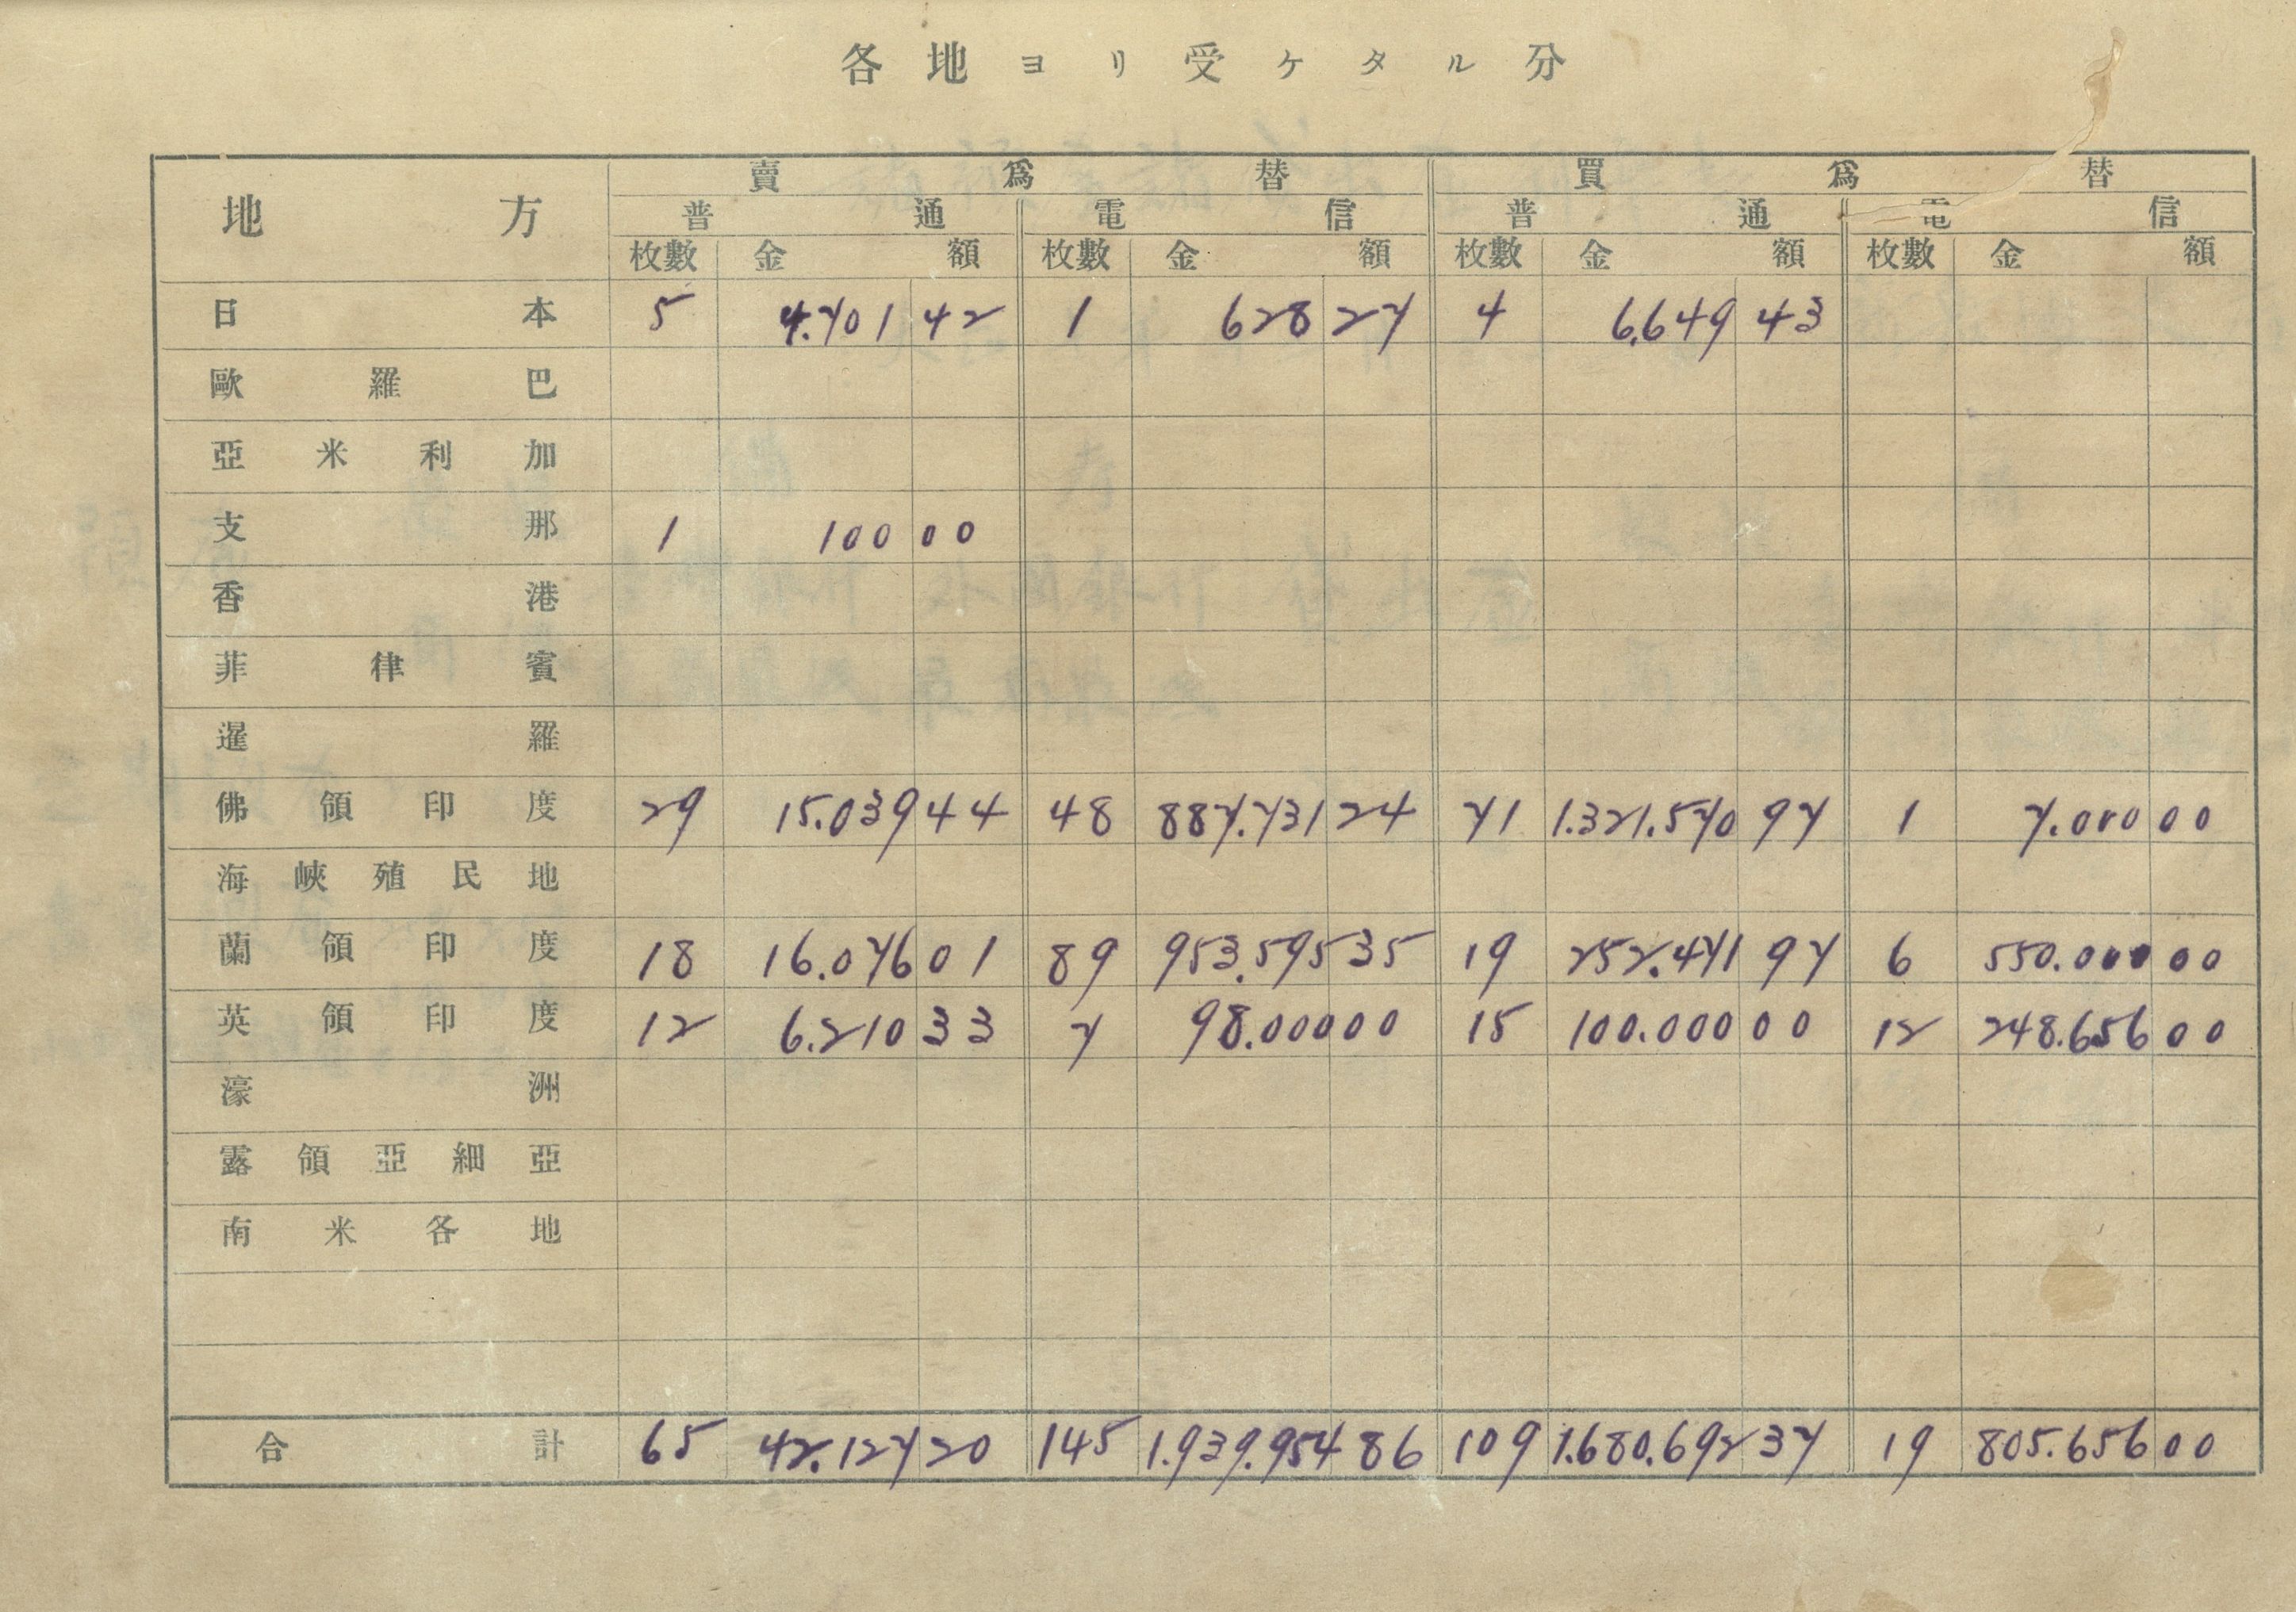 各地ヨリ受ケタル分
地方 賣爲替 買爲替
普通 電信 普通 電信
枚數 金額 枚數 金額 枚數 金額 枚數 金額
日本 5 4.701 42 1 628 27 4 6.649 43
歐羅巴
亞米利加
支那 1 100 00
香港
菲律賓
暹羅
佛領印度 29 15.039 44 48 887.731 24 71 1.321.570 97 1 7.000 00
海峽殖民地
蘭領印度 18 16.076 01 89 953.595 35 19 252.471 97 6 550.000 00
英領印度 12 6.210 33 7 98.000 00 15 100.000 00 12 248.656 00
濠洲
露領亞細亞
南米各地
合計 65 42.127 20 145 1.939.954 86 109 1.680.692 37 19 805.656 00